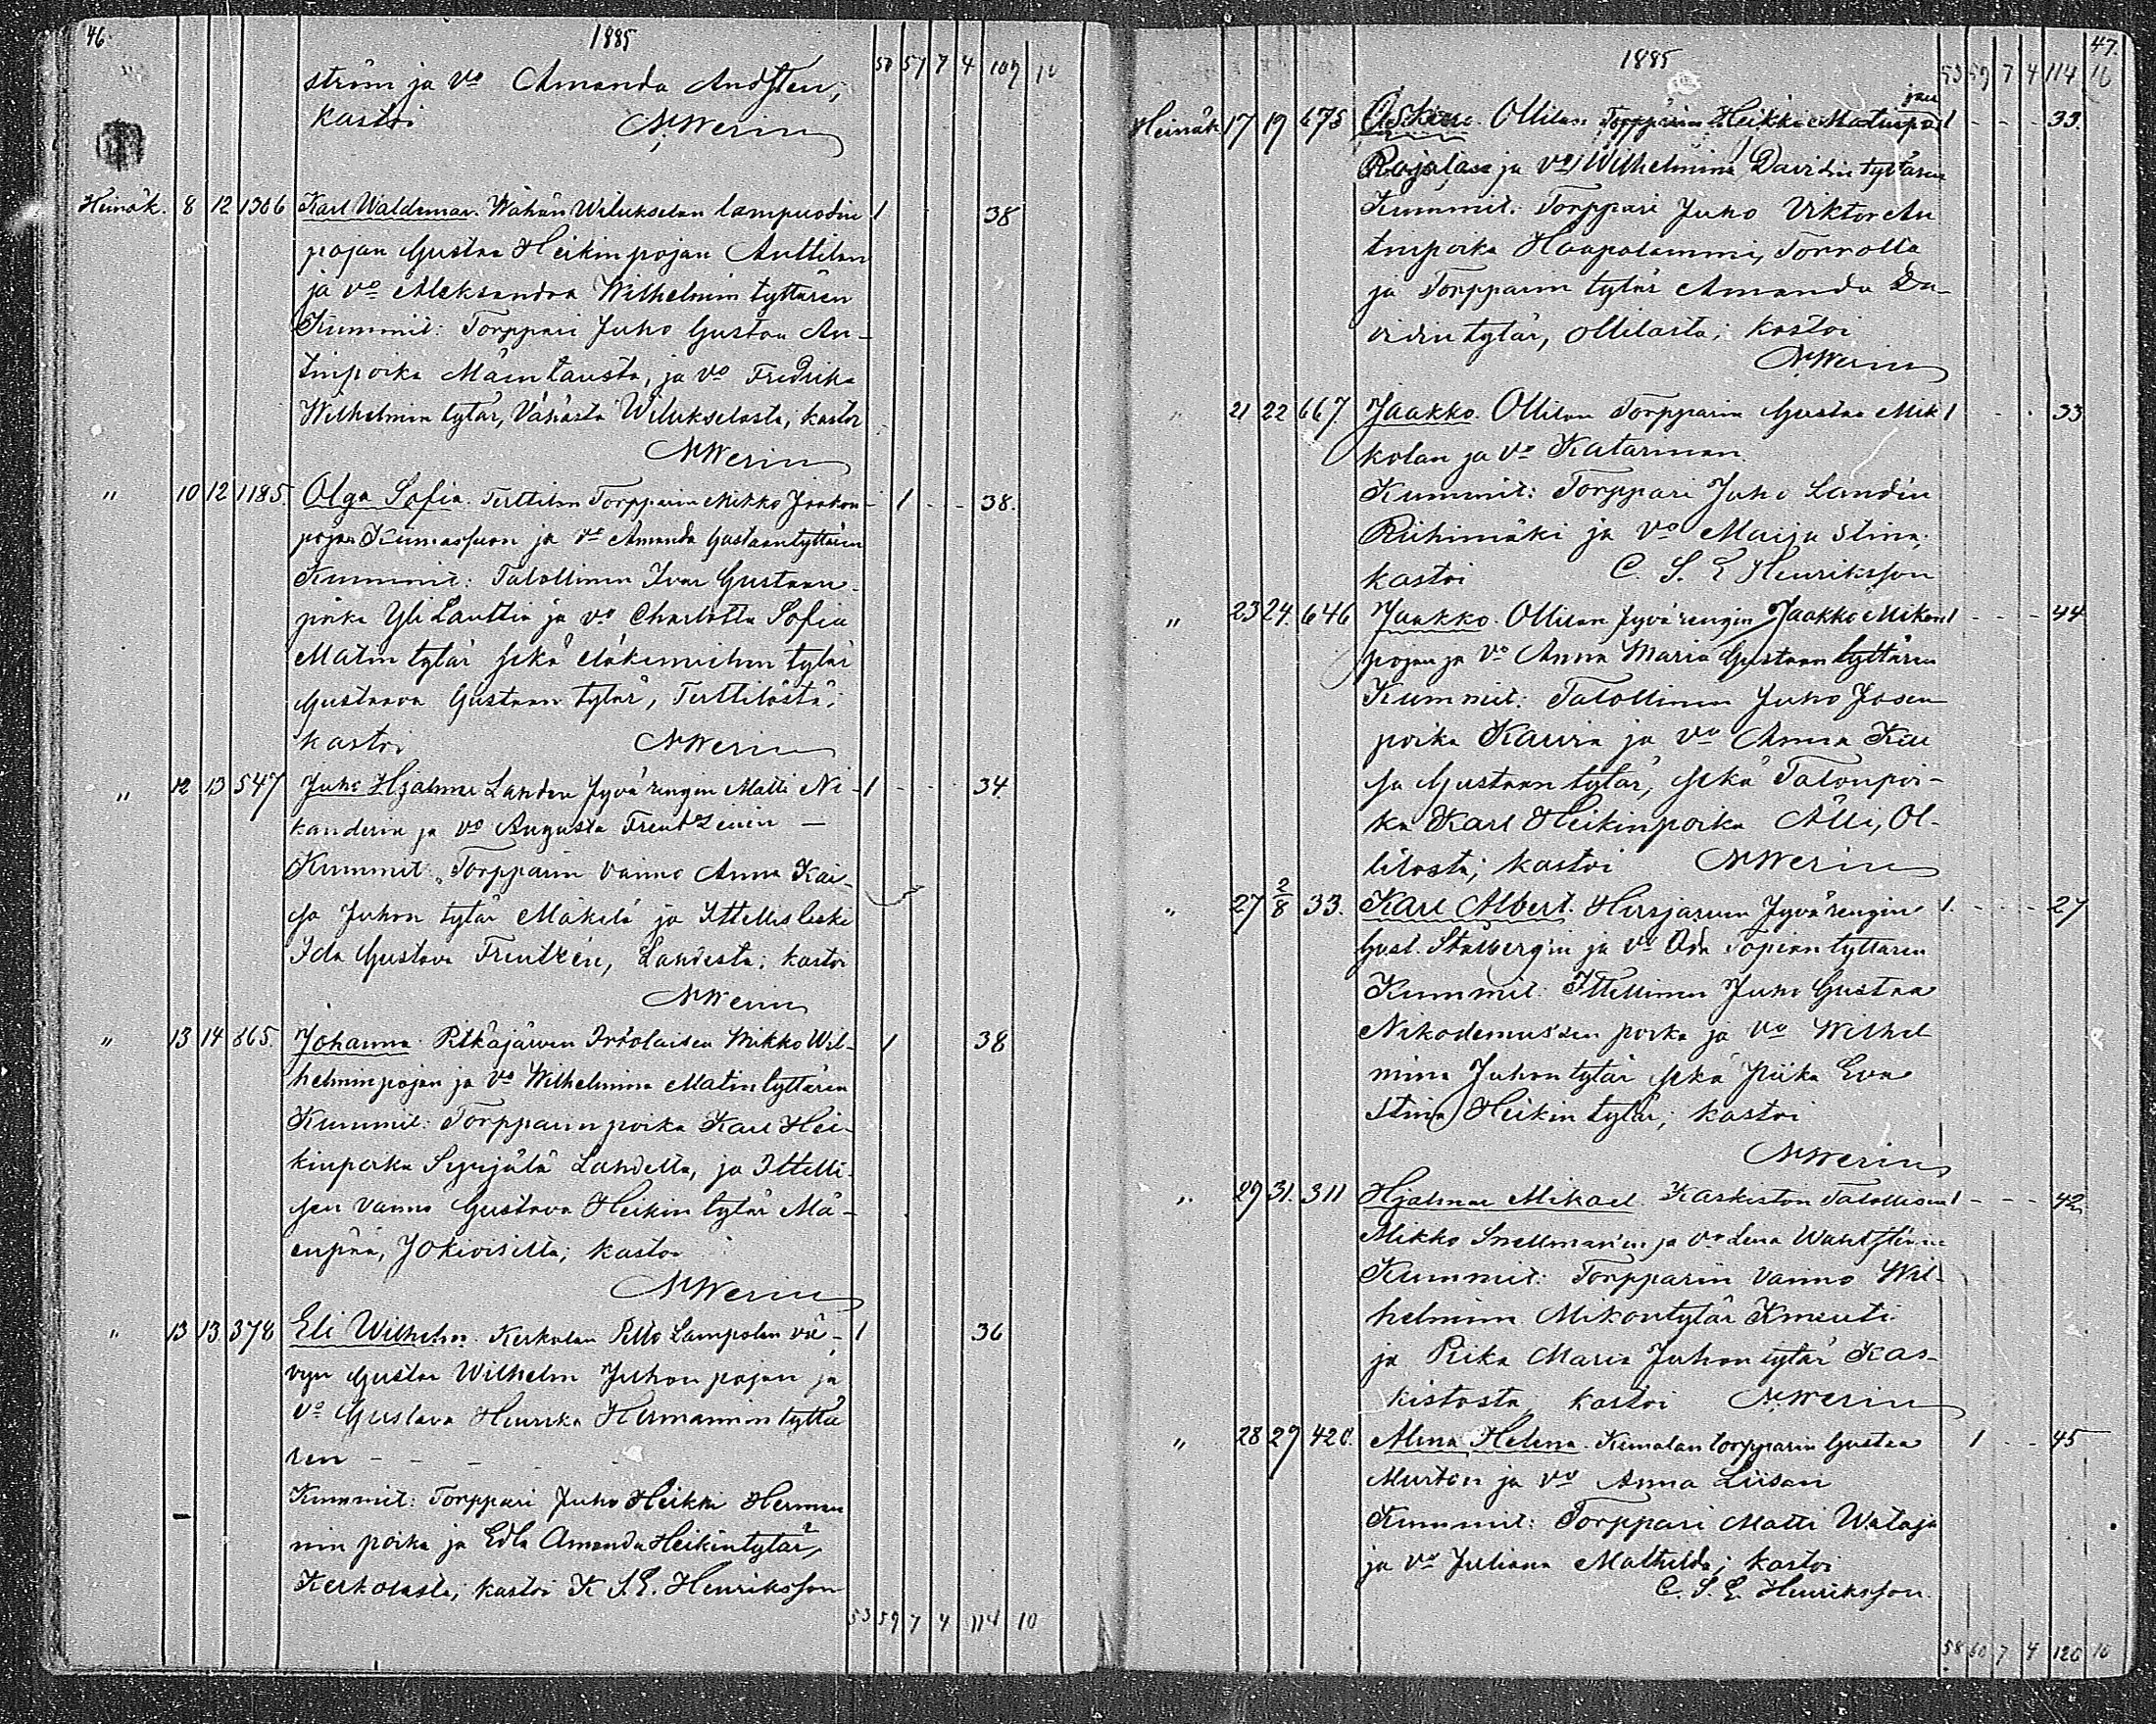 46.
1885
50 57 7 4 107 10
ström ja vo Amanda Andsten;
kastoi N. Werin
Heinäk. 8 12 1306 Karl Waldemar. Wähän Wilukselan lampuodin 1 38
pojan Gustaa Heikinpojan Anttilan
ja vo Aleksandra Wilhelmin tyttären
Kummit: Torppari Juho Gustaa An-
tinpoika Mäentausta, ja vo Fredrika
Wilhelmin tytär, Vähästä Wilukselasta; kastoi
N Werin
" 10 12 1185. Olga Sofia. Terttilän Torpparin Mikko Jaakon- - 1 - - 38.
pojan ja vo Amanda Gustaantyttären
Kummit: Talollinen Ivar Gustaan-
poika Yli Lauttia ja vo Charlotta Sofia
Matin tytär sekä eläkemiehen tytär
Gustaava Gustaan tytär, Terttilästä;
kastoi N Werin
" 12 13 547 Juho Hjalmar Lahden Jyvä rengin Matti Ni- 1 - - - 34.
kanderin ja vo Augusta Frentzenin —
Kummit: Torpparin vaimo Anna Kai-
sa Juhon tytär Mäkelä ja Ittellis leski
Ida Gustava Frentzén, Lahdesta; kastoi
N Werin
" 13 14 865. Johanna Pitkäjärven Irtolaisen Mikko Wil- 1 38
helminpojan ja vo Wilhelmina Matin tyttären
Kummit: Torpparin poika Karl Hei-
kinpoika Syrjälä Lahdelta, ja Ittelli-
sen vaimo Gustava Heikin tytär Mä-
enpää, Jokivisiltä; kastoi
N Werin
" 13 13 378 Eli Wilhelm. Kerkolan Pello Lampolan vä- 1 36
vyn Gustaa Wilhelm Juhon pojan ja
vo Gustava Henrika Hermannin tyttä
ren - - - - -
Kummit: Torppari Juho Heikki Herman
nin poika ja Edla Amanda Heikintytär,
Kerkolasta; kastoi K S. E. Henriksson
53 59 7 4 114 10
47.
1885
53 59 7 4 114 10
jan
Heinäk 17 19 675 Oskar. Ollilan Torpparin Heikki Matinpo 1 - - - 33.
Rajalan ja vo Wilhelmina Davidin tyttären
Kummit: Torppari Juho Viktor An
tinpoika Haapalammi, Torrolta
ja Torpparin tytär Amanda Da-
vidin tytär, Ollilasta; kastoi
N. Werin
" 21 22 667. Jaakko. Ollilan Torpparin Gustaa Mik 1 - - 33
kolan ja vo Katarinan
Kummit: Torppari Juho Landin
Riihimäki ja vo Maija Stina;
kastoi C. S. E Henriksson
" 23 24. 646 Jaakko. Ollilan Jyvä rengin Jaakko Mikon 1 - - - 44
pojan ja vo Anna Maria Gustaan tyttären
Kummit: Talollinen Juho Josen
poika Kauria ja vo Anna Kai
sa Gustaan tytär, sekä Talonpoi-
ka Karl Heikinpoika Alli, Ol-
lilasta; kastoi N Werin
" 27 2/8 33. Karl Albert. Hirsjärven Jyvä rengin 1. - - - 27
Gust. Stålbergin ja vo Ada Topian tyttären
Kummit: Ittellinen Juho Gustaa
Nikodemus'sen poika ja vo Wilhel
mina Juhon tytär sekä Piika Eva
Stina Heikin tytär; kastoi
N Werin
" 29 31. 311 Hjalmar Mikael. Kaskiston Talollisen 1 - - - 42
Mikko Snellman'in ja vo Lena
Kummit: Torpparin Vaimo Wil-
helmina Mikontytär Kmeuti
ja Piika Maria Juhon tytär Kas-
kistosta; kastoi N. Werin
" 28 29 420. Alma Helena. Kimalan torpparin Gustaa 1 - - 45
Murton ja vo Anna Liisan
Kummit: Torppari Matti Wataja
ja vo Juliana Mathilda; kastoi
C. S. E. Henriksson.
58 60 7 4 120 10